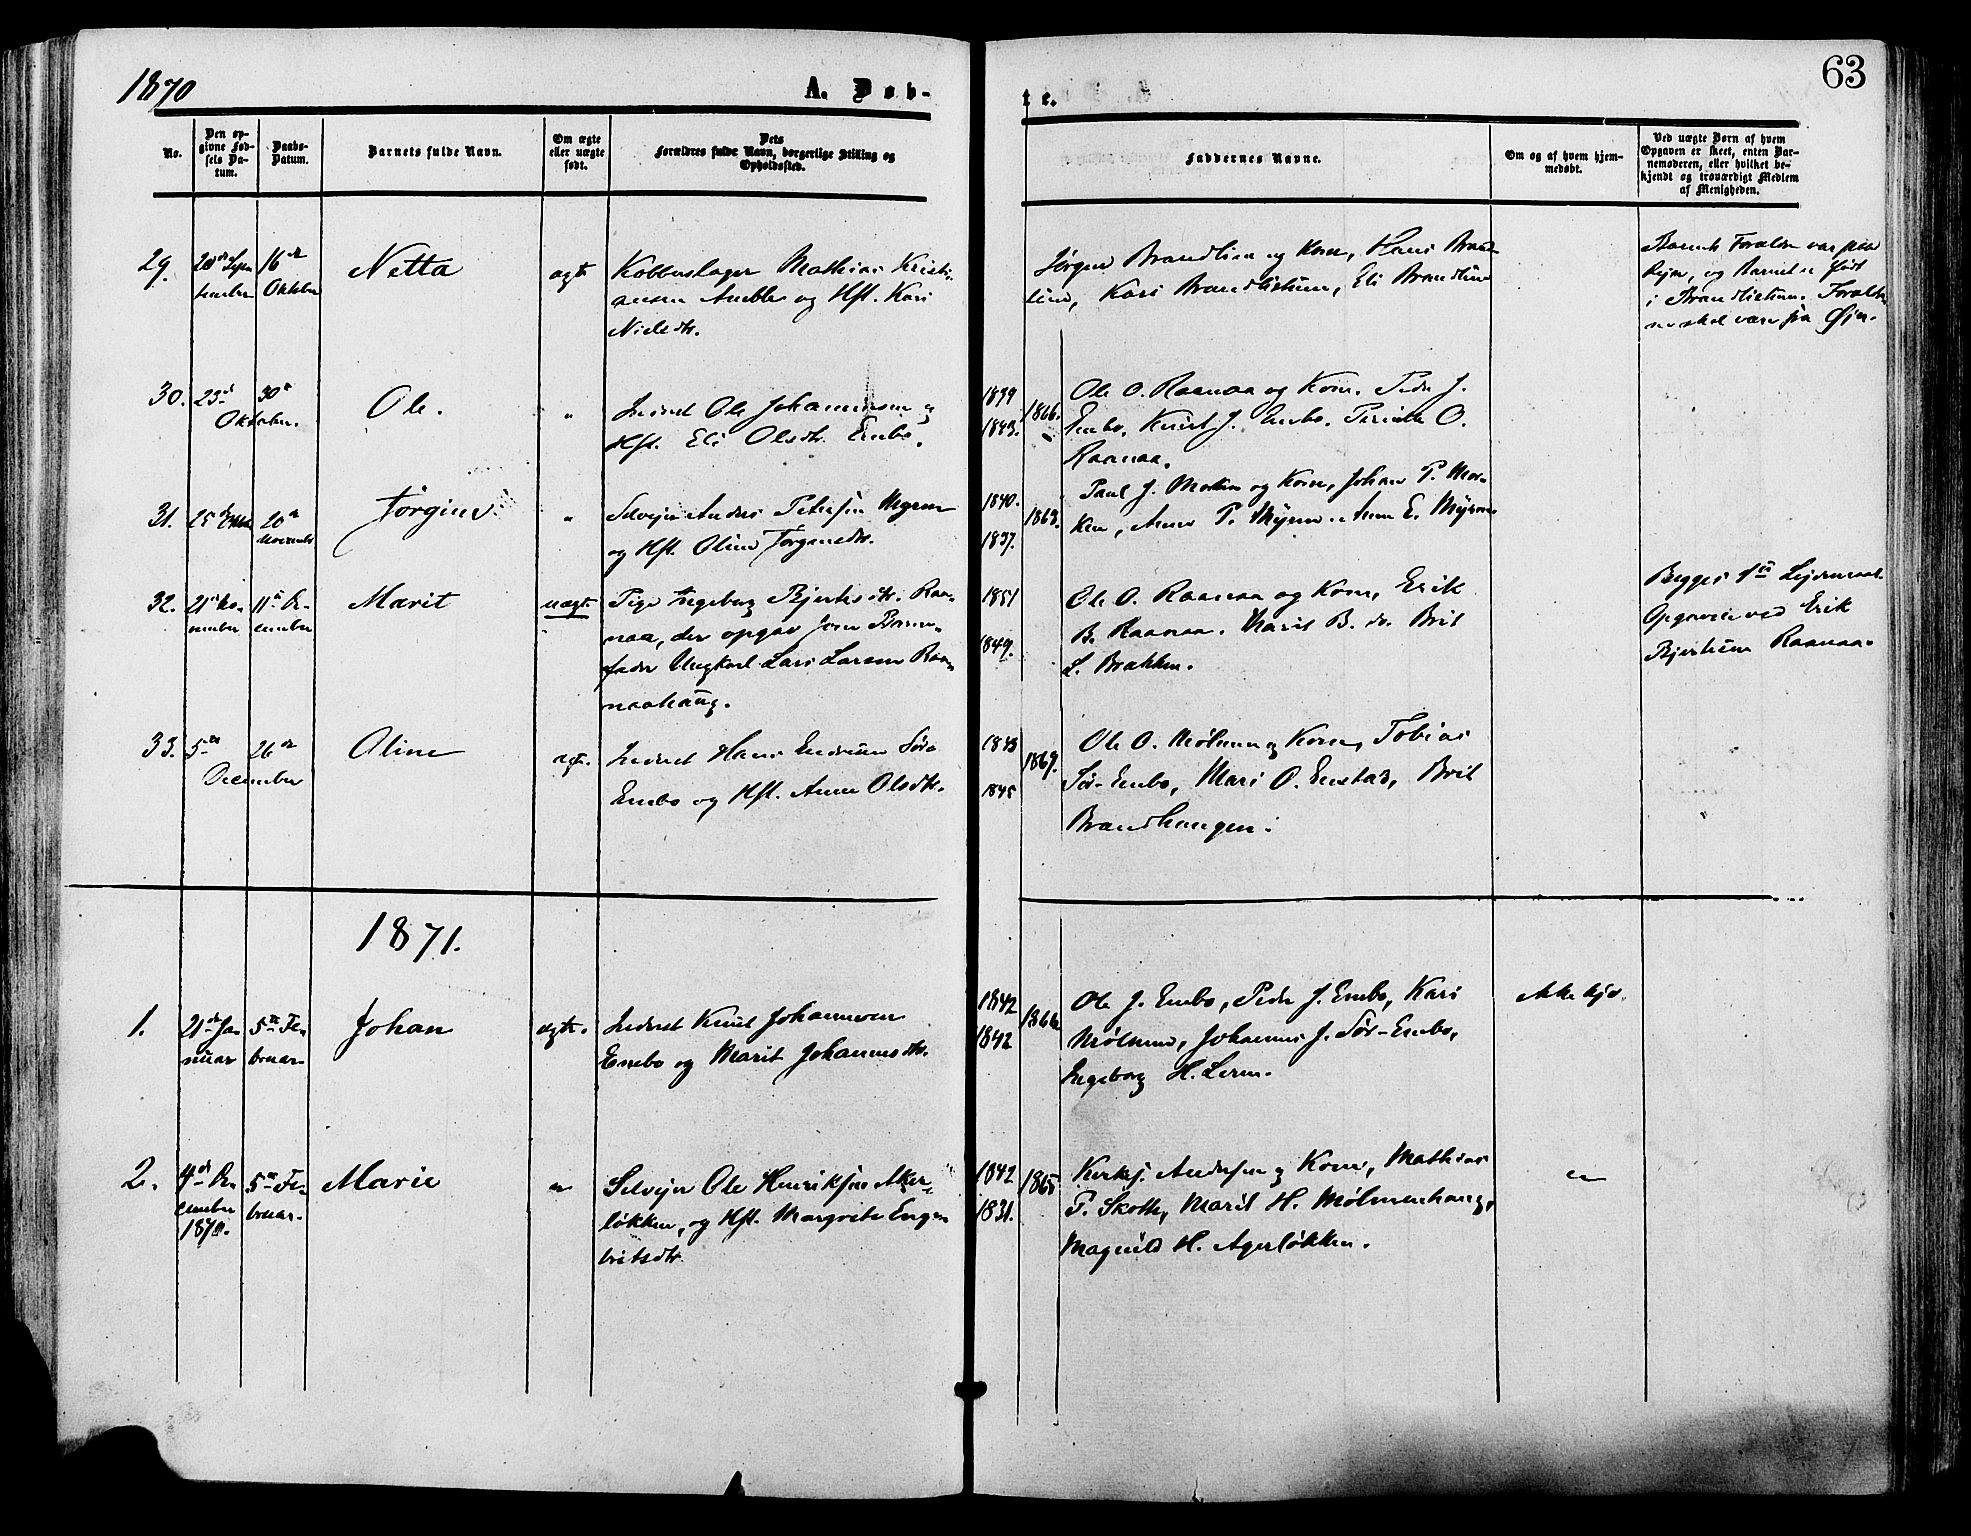 1870
A. Døb-
te.
63
No.
Den op-
givne Fød-
sels Da-
tum.
Daabs-
Datum.
Barnets fulde Navn.
Om ægte
eller uægte
født.
Dets
Forældres fulde Navn, borgerlige Stilling og
Opholdssted.
Faddernes Navne.
Om og af hvem hjem-
medøbt.
Ved uægte Børn af hvem
Opgaven er skeet, enten Bar-
nemoderen, eller hvilket be-
kjendt og troværdigt Medlem
af Menigheden.
29.
20de Sep
tember
16de
Oktober
Netta
ægte
Kobberslager Mathias Kristi-
ansen og Hst. Kari
Nielsdtr.
Jørgen Brandlien og Kone, Hans Brand
lien, Kari Brandlistuen, Eli Brandlien
Barnets Forældre var paa
Rejse, og Barnet er født
i Brandlistuen. Foræld
ne skal være fra Øjer.
30.
23de
30te
Oktober.
Ole.
"
Inderst Ole Johannessen og
Hst. Eli Olsdtr. Enebo.
1839
1843.
1866.
Ole O. Raanaa og Kone, Peder J.
Enebo, Knut J. Enebo, O.
Raanaa.
31.
25de Oktbr
20de
November
Jørgine
"
Selvejer Anders Petersen Myren
og Hst. Oline Jørgensdtr.
1840.
1837.
1863.
Paul J. og Kone, Johan P. Mor-
ken, P. Myren, Anne E. Myren
32.
21de No-
vember
11te De-
cember
Marit
uægte
Pige Ingeborg Bjertesdtr. Raa-
naa, der opgav som Barne-
fader Ungkarl Lars Larsen Raa-
naahaug.
1851
1849.
Ole O. Raanaa og Kone, Erik
B. Raanaa. Marit B. do. Brit
L. Brækken.
Begges 1ste Lejermaal.
Opgaven ved Erik
Raanaa.
33.
5te
26de
December
Oline
ægt.
Inderst Hans Endresen Sør-
Enebo og Hst. Anne Olsdtr.
1843
1845
1869.
Ole O. Mølmen og Kone, Tobias
Sør-Enebo, Mari O. Enstad, Brit
Brandhaugen.
1871.
1.
21de Ja-
nuar
5te Fe-
bruar
Johan
ægte.
Inderst Knut Johannesen
Enebo og Marit Johannesdtr.
1842
1842
1866
Ole J. Enebo, Peder J. Enebo, Kari
Mølmen, Johannes J. Sør-Enebo,
Ingeborg H. Lerm.
Ikke hjd.
2.
4de De-
cember
1870.
5te Fe-
bruar.
Marie
"
Selvejer Ole Henriksen Aker-
løkken, og Hst. Margrete Engel
britsdtr
1842
1831.
1865
Kirkesj. Andersen og Kone, Mathias
P. Skotte, Marit H. Mølmenhaug,
Magnild H. Agerløkken.
"